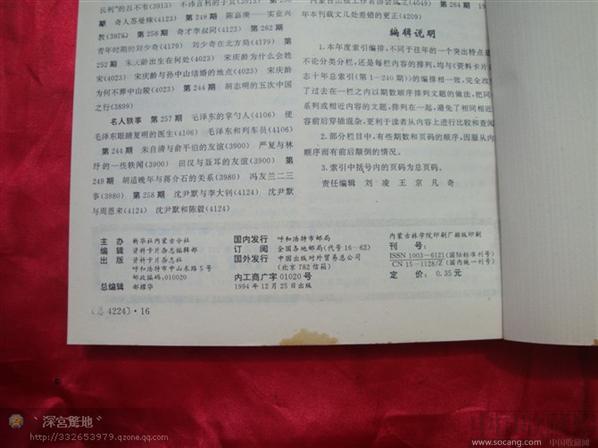 长利”的吕不韦(3913) 不沛言利的子贡(3913)
奇人苏曼殊(4123) 第249期 陈嘉庚——实业兴
教(3978) 第258期 奇才李叔同(4123) 第262期
青年时期的刘少奇(4179) 刘少奇在北方局(4179) 第
252期 朱元勋出生在何处(4023) 宋庆龄为什么姓
宋(4023) 宋庆龄与孙中山结婚的地点(4023) 宋庆龄
为何不葬中山陵(4023) 第244期 胡志明的五次中国
之行(3899)
名人轶事 第257期 毛泽东的掌勺人(4106) 使
毛泽东眼睛复明的医生(4106) 毛泽东和列车员(4106)
第244期 朱自清与俞平伯的友谊(3900) 严复与林
纾的一些轶闻(3900) 田汉与聂耳的友谊(3900) 第
249期 胡适晚年与蒋介石的关系(3980) 冯友兰二三
事(3980) 第258期 沈尹默与李大钊(4124) 沈尹默
与周恩来(4124) 沈尹默和陈毅(4124)
(4049) 第264期
年本刊载文几处差错的更正(4209)
编辑说明
1.本年度索引编排,不同于往年的一个突出特点是
不论分类分栏,还是每栏内容的排列,均与《资料卡片
志十年总索引(第1-240期)》的编排相一致,完全改
了过去在一栏之内以期数顺序排列文题的做法,把同
系列或相近内容的文题,排列在一起,避免了相同相近
容前后穿插混杂,更利于读者从内容上进行比较和查阅
2.部分栏目中,有些期数和页码的顺序,因服从内
顺序而有前后颠倒的情况。
3.索引中括号内的页码为总页码。
责任编辑 刘凌 王京 凡奇
主办 新华社内蒙古分社
编辑 资料卡片杂志编辑部
出版 资料卡片杂志社
呼和浩特市中山东路5号
邮政编码:010020
总编辑 邵耀华
国内发行 呼和浩特市邮局
订阅 全国各地邮局(代号16-62)
国外发行 中国出版对外贸易总公司
(北京782信箱)
内工商广字01020号
1994年12月25日出版
内蒙古林学院印刷厂排版印刷
刊号:
ISSN 1003-6121(国际标准刊号)
CN 15-1128/Z(国内统一刊号)
定价:0.35元
(总4224)·16
深宫驚地
http://332653979.qzone.qq.com
www.socang.com 中国收藏网